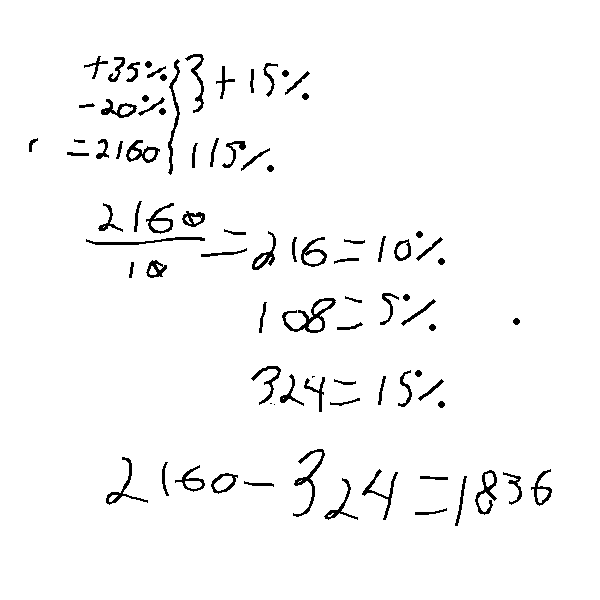 +35% } +15%
-20%
=2160 115%
2160/10 = 216 = 10%
108 = 5%
324 = 15%
2160 - 324 = 1836